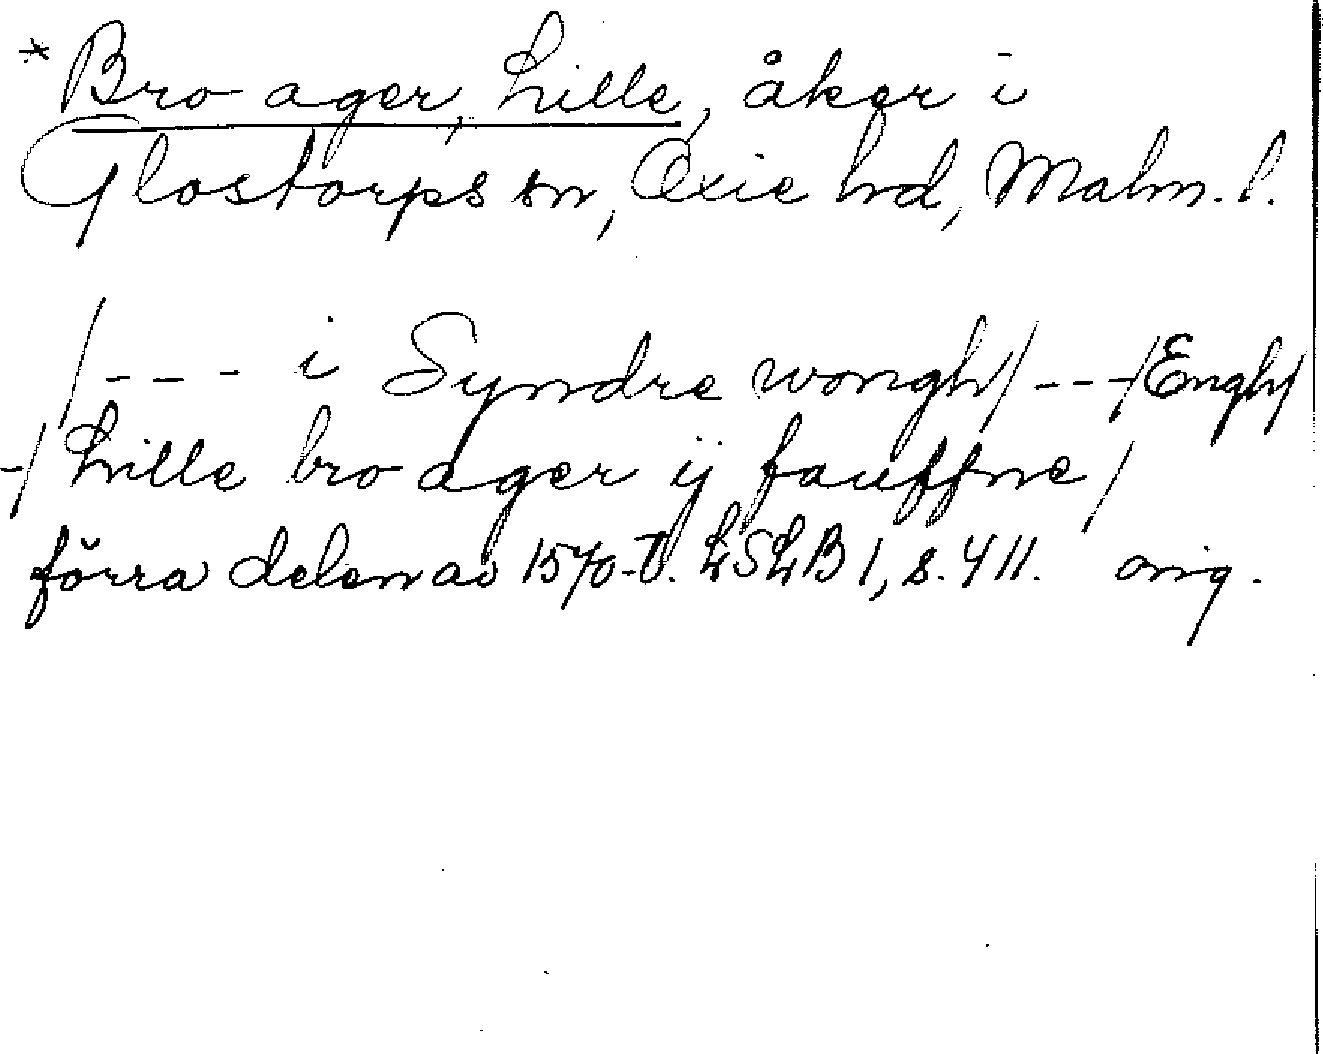 * Bro ager, Lille, åker i
Glostorps sn, Oxie hd, Malm. l.
/--- i Syndre wongh/---/Engh/
-/ Lille bro ager ij fauffne/
förra delen av 1570-t. LSLB I, s. 411. orig.